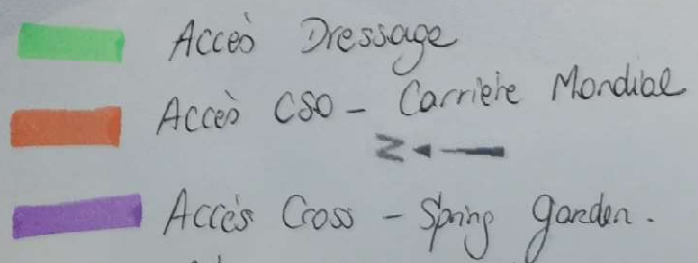 Accès Dressage
Accès CSO - Carrière Mondial
N
Accès Cross - Spring Garden.